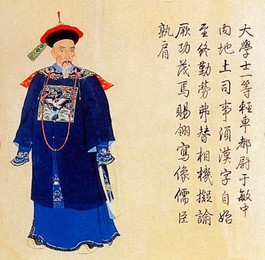 大學士一等輕車都尉于敏中
内地土司事須漢字自始
至終勤勞弗替相機擬諭
厥功茂焉賜翎寫像儒臣
孰肩